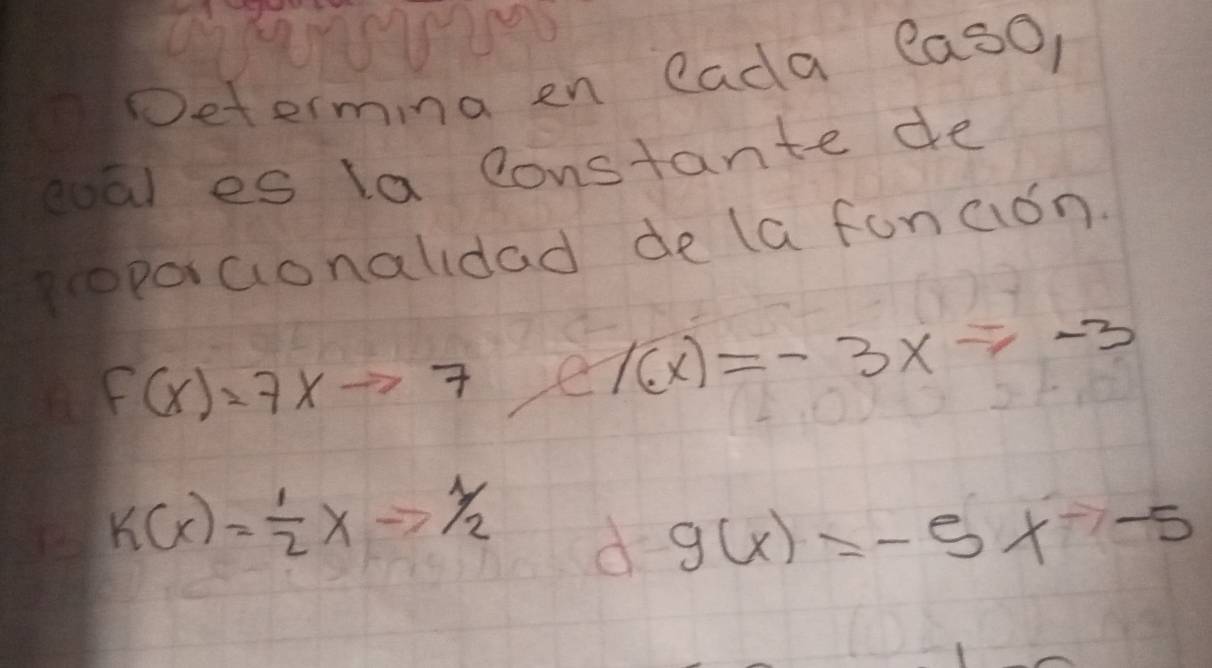 Determina en cada caso,
cuál es la constante de
proporcionalidad de la función.
F(x)=7x → 7 c l(x)=-3x → -3
K(x)=1/2 x → 1/2 d g(x)=-5x → -5